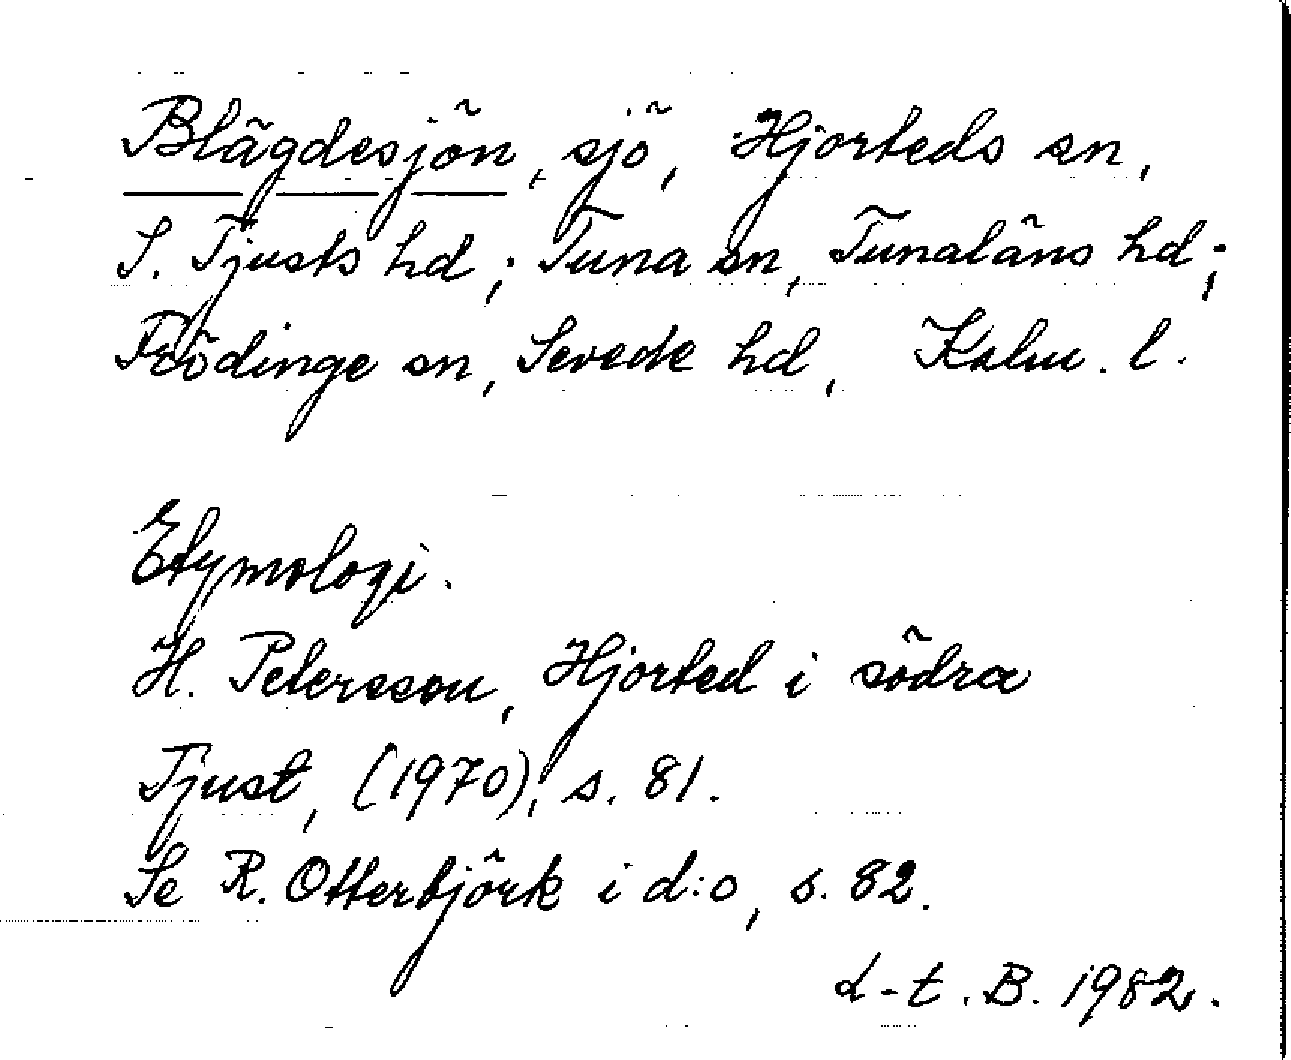 Blägdesjön, sjö, Hjorteds sn,
S. Tjusts hd; Tuna sn, Tunaläns hd;
Frödinge sn, Sevede hd, Kalm. l.
Etymologi.
H. Petersson, Hjorted i södra
Tjust, (1970), s. 81.
Se R. Otterbjörk i d:o, s. 82.
L-t. B. 1982.